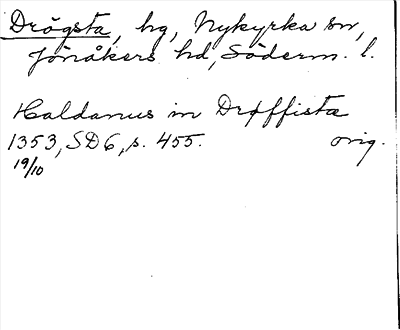 Drögsta, hg, Nykyrka sn,
Jönåkers hd, Söderm. l.
Haldanus in Drøffista
1353, SD6, s. 455. orig.
19/10